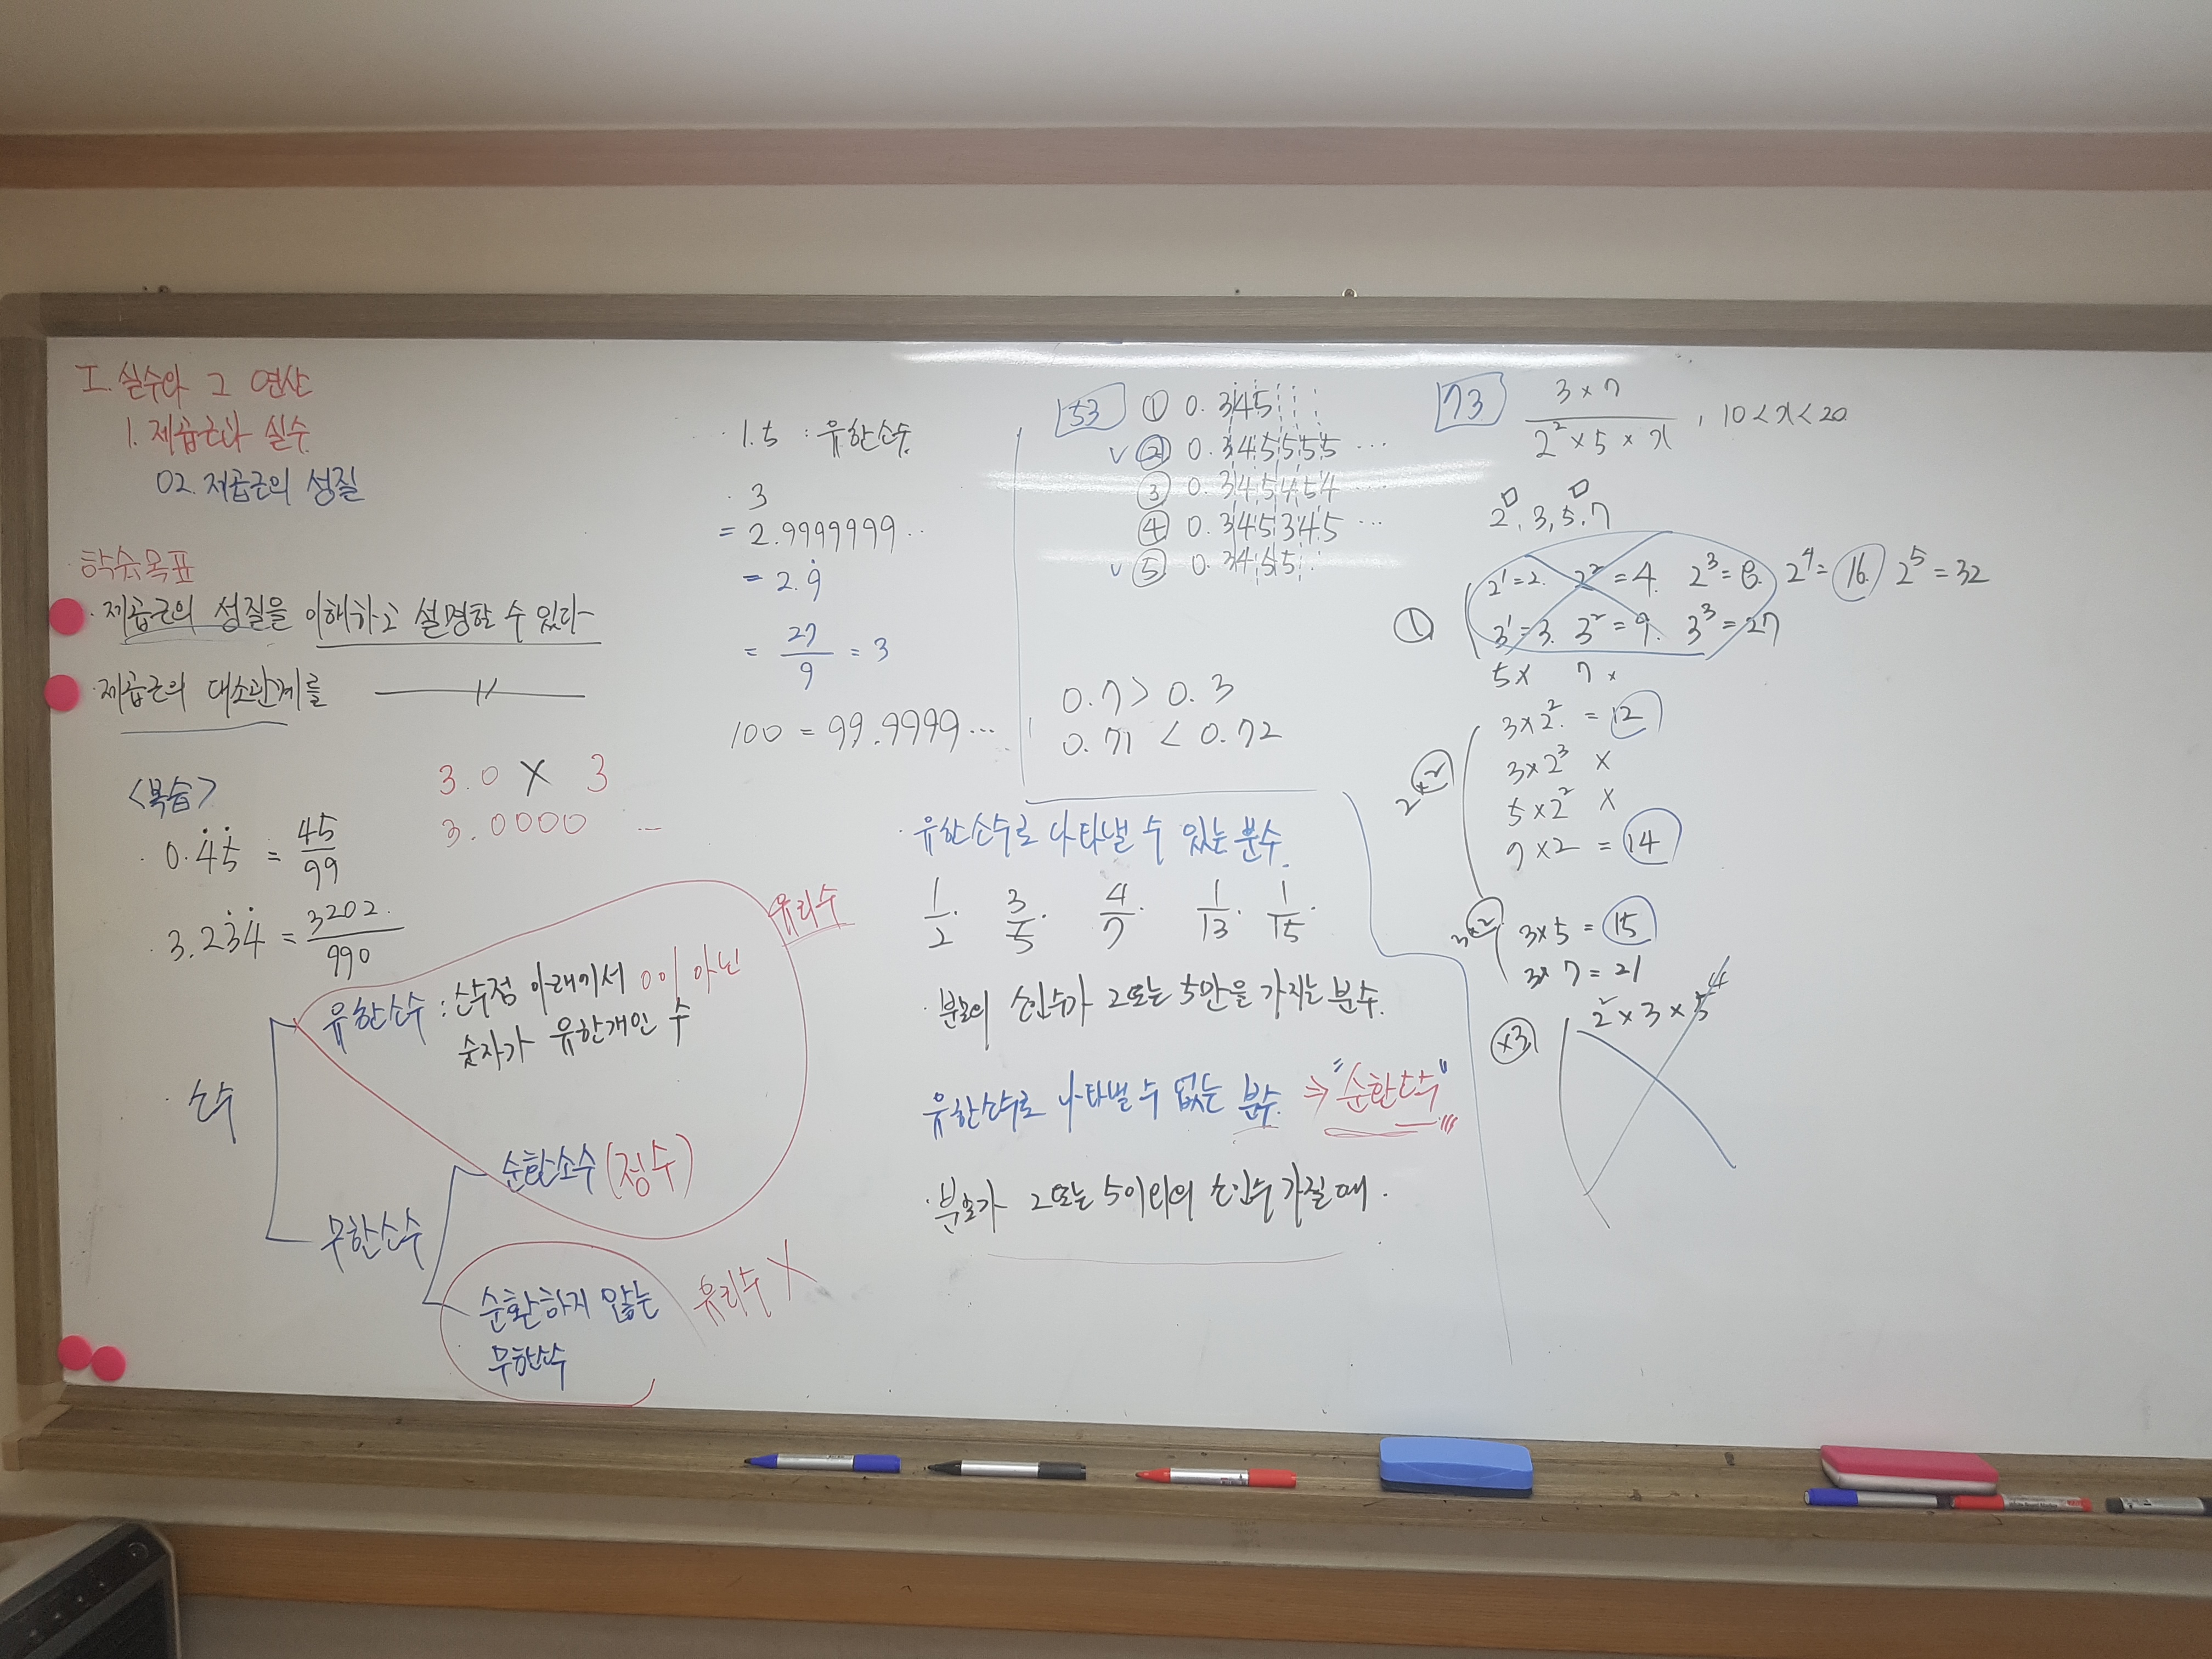 I. 실수와 그 연산
1. 제곱근과 실수
02. 제곱근의 성질
학습목표
· 제곱근의 성질을 이해하고 설명할 수 있다
· 제곱근의 대소관계를 ——〃——
<복습>
· 0.4̇5̇ = 45/99
· 3.23̇4̇ = 3202/990
3.0 X 3
3.0000 ...
· 소수
유한소수 : 소수점 아래에서 0이 아닌
숫자가 유한개인 수
유리수
무한소수
순환소수 (정수)
순환하지 않는
무한소수
유리수 X
· 1.5 : 유한소수.
· 3
= 2.9999999..
= 2.9̇
= 27/9 = 3
100 = 99.9999...
53 ① 0.345
∨ ② 0.345555 ...
③ 0.345454 ...
④ 0.345345 ...
∨ ⑤ 0.3455
0.7 > 0.3
0.71 < 0.72
· 유한소수로 나타낼 수 있는 분수.
1/2. 3/5. 4/7. 1/13. 1/15.
· 분모의 소인수가 2또는 5만을 가지는 분수.
유한소수로 나타낼 수 없는 분수. ⇒ "순환소수"
· 분모가 2또는 5이외의 소인수 가질 때.
73 3×7 / 2²×5×x , 10<x<20
2, 3, 5, 7
① 2¹=2. 2²=4. 2³=8. 2⁴=16. 2⁵=32
3¹=3. 3²=9. 3³=27
5× 7×
3×2² = 12
3×2³ ×
5×2² ×
7×2 = 14
3×5 = 15
3×7 = 21
×3
2×3×5